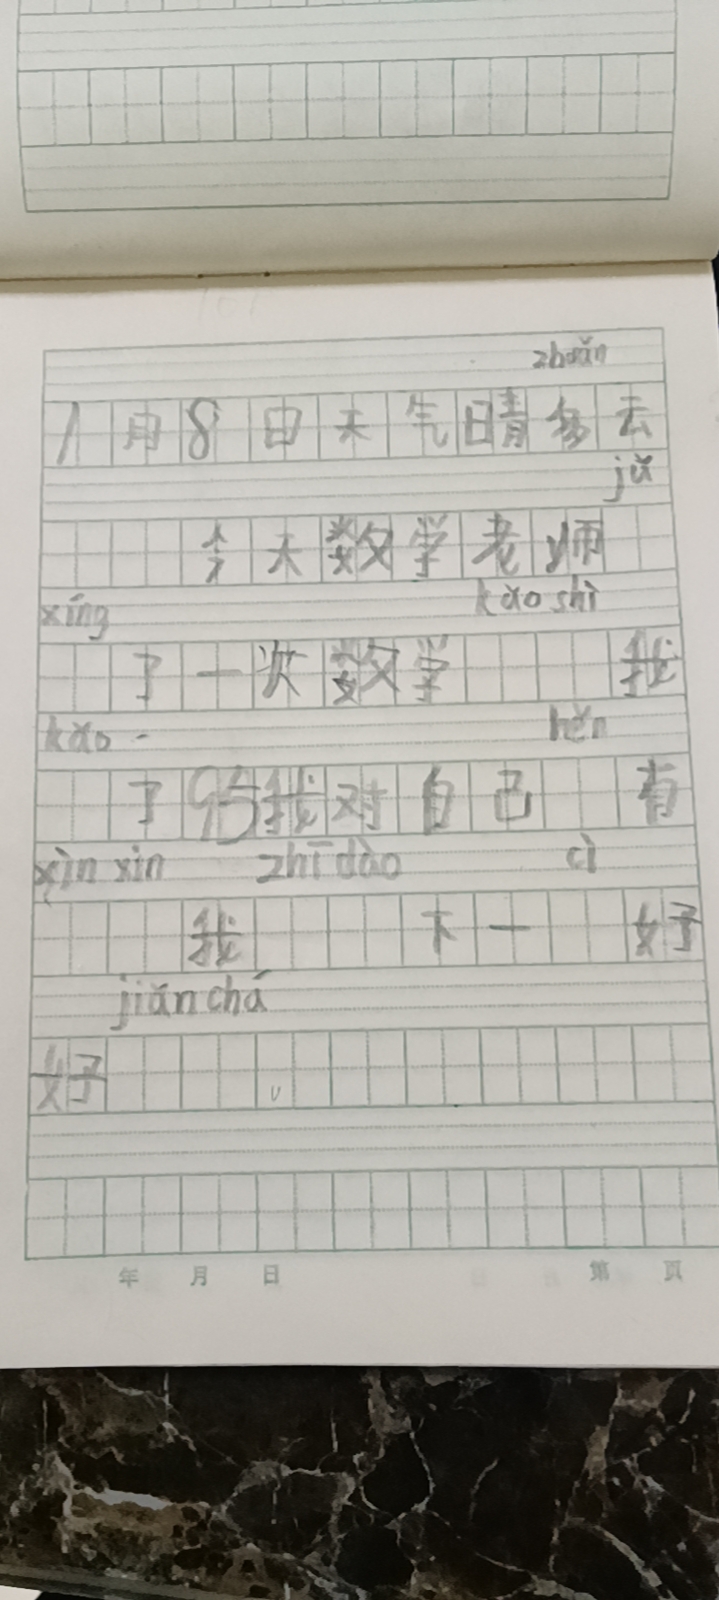 zhuǎn
1月8日天气晴多云
jǔ
今天数学老师
xíng kǎo shì
了一次数学 我
kǎo hěn
了95我对自己 有
xìn xīn zhī dào cì
我 下一 好
jiǎn chá
好
年 月 日 第 页